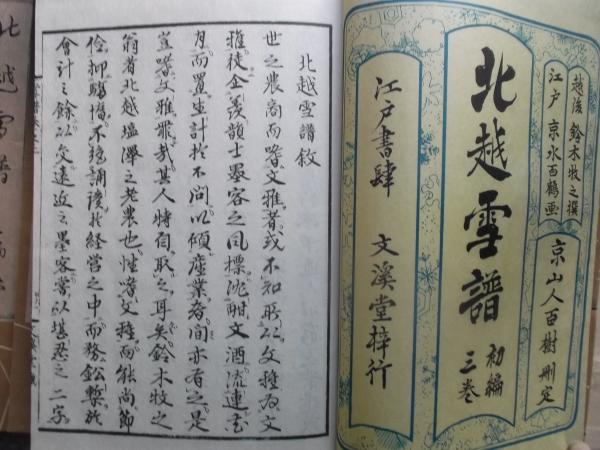 越後 鈴木牧之撰
江戸 京水百鶴画
京山人百樹刪定
北越雪譜
初編
三巻
江戸書肆 文溪堂梓行
北越雪譜敘
世之農商而嗜文雅者或不知所以文雅為文
雅徒企羨韻士墨客之風標洮酣文酒流連花
月而置生計於不問以傾産業者間亦有之是
豈嗜文雅罪哉其人特自取之耳矣鈴木牧之
翁者北越塩澤之老農也性嗜文雅而能尚節
儉抑驕惰不絶誦讀於経営之中而務鉛槧於
會計之餘以交遠近之墨客常以堪忍之二字
北越雪譜